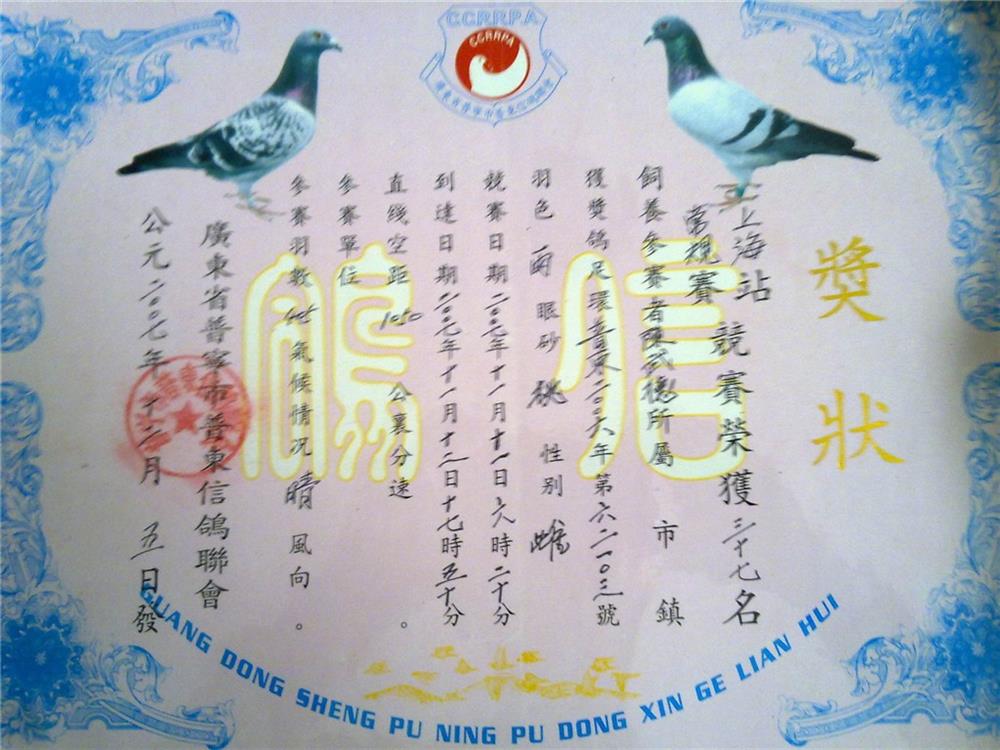 CCRRPA
CCRRPA
獎狀
上海站 競賽榮獲三十七名
常規賽
飼養參賽者陳武德所屬 市 鎮
獲獎鴿足環普東二〇〇六年第六二一〇三號
羽色 雨 眼砂 桃 性别 雌
競賽日期二〇〇七年十一月十一日六時二十分
到達日期二〇〇七年十一月十二日十七時五十分
直线空距1050公襄分速 。
參賽單位
參賽羽數405氣候情况晴風向 。
廣東省普寧市普東信鴿聯會
公元二〇〇七年十二月五日發
信鴿
GUANG DONG SHENG PU NING PU DONG XIN GE LIAN HUI